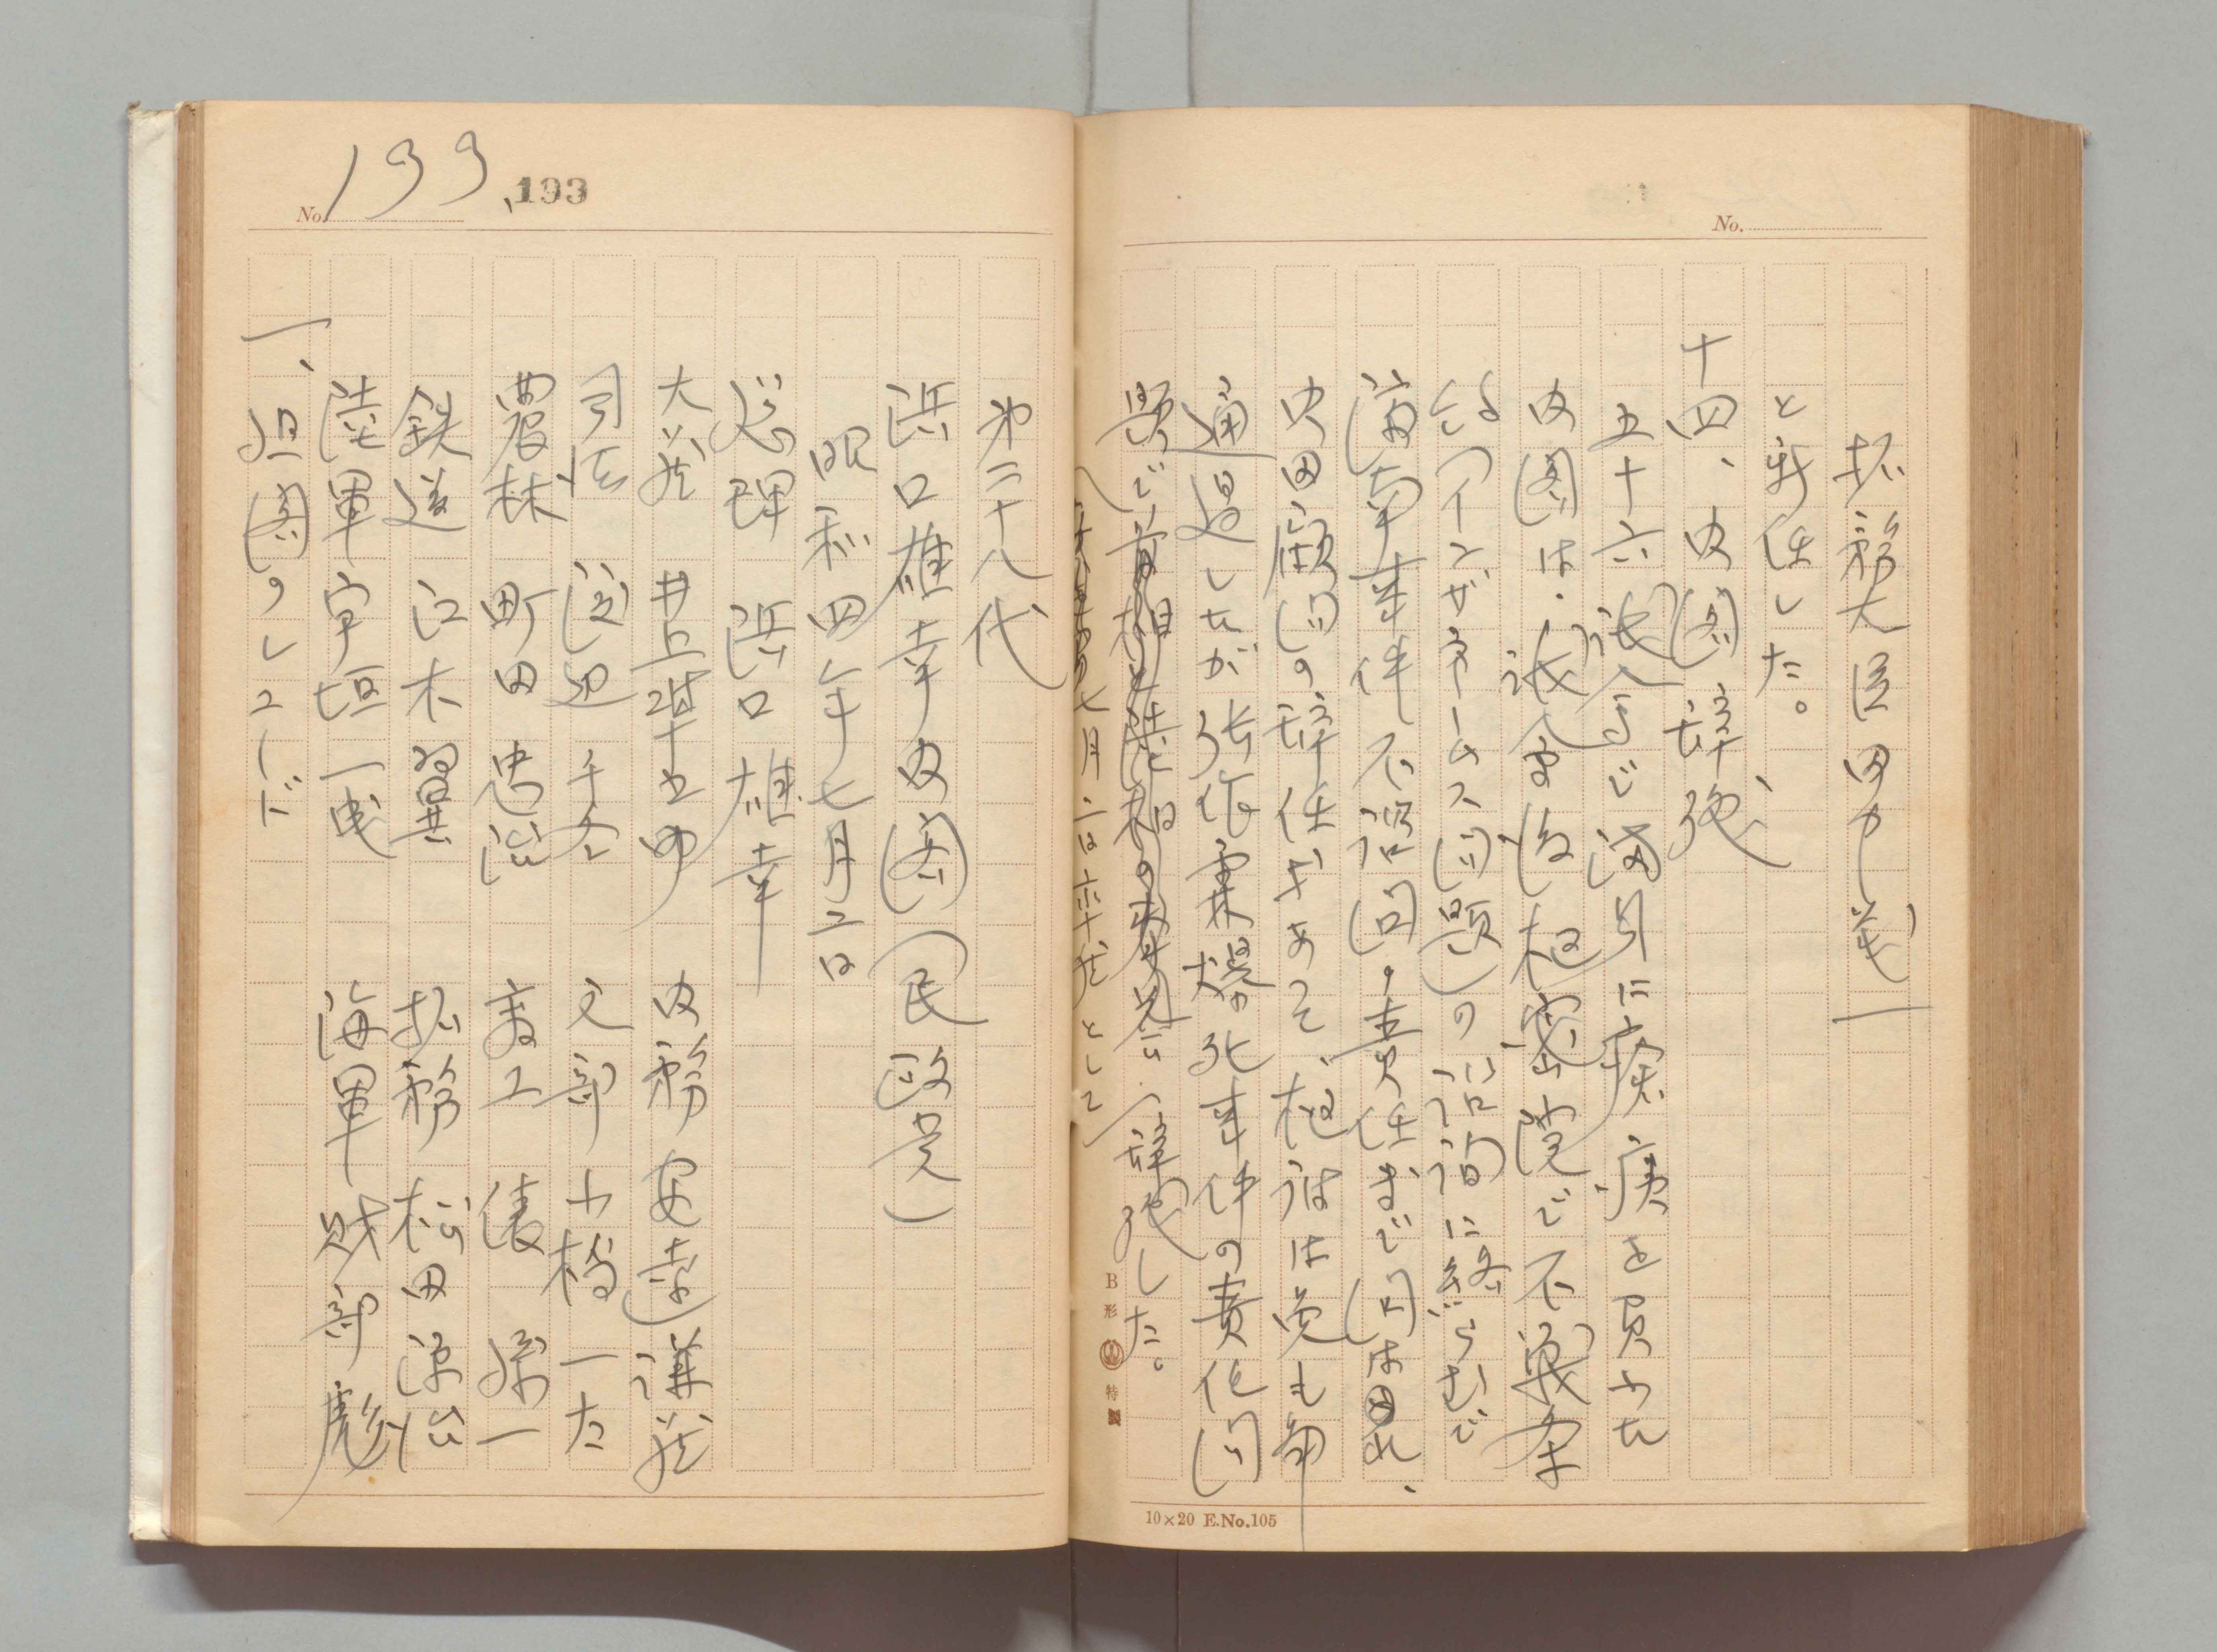 No.
拓務大臣田中義一
と新任した。
十四、内閣辞職、
五十六議会で満身に疾痍を負ふた
内閣は、議会後枢密院で不戦条
約(インザネームス問題)の諮詢に終らむで
済南事件不諮問の責任まで問はれ、
内田顧問の辞任があって、枢府は兎も角
通過したが張作霖爆死事件の責任問
題で
辞職した。
七月二日
として
B形 特製
10×20 E.No.105
No. 193
193
第二十八代
浜口雄幸内閣(民政党)
昭和四年七月二日
総理 浜口雄幸
大蔵 井上準之助 内務 安達謙蔵
司法 渡辺千冬 文部 小橋一太
農林 町田忠治 商工 俵孫一
鉄道 江木翼 拓務 松田源治
陸軍 宇垣一成 海軍 財部彪
一、組閣のレコード